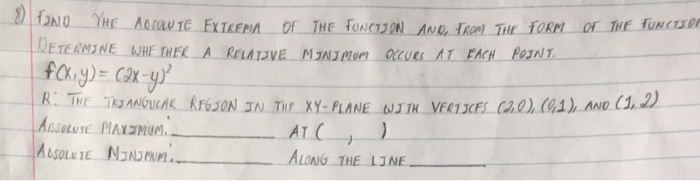 8) FIND THE ABSOLUTE EXTREMA OF THE FUNCTION AND, FROM THE FORM OF THE FUNCTION
DETERMINE WHETHER A RELATIVE MINIMUM OCCURS AT EACH POINT.
f(x,y) = (2x-y)²
R: THE TRIANGULAR REGION IN THE XY-PLANE WITH VERTICES (2,0), (0,1), AND (1,2)
ABSOLUTE MAXIMUM: ______ AT ( , )
ABSOLUTE MINIMUM: ______ ALONG THE LINE ______